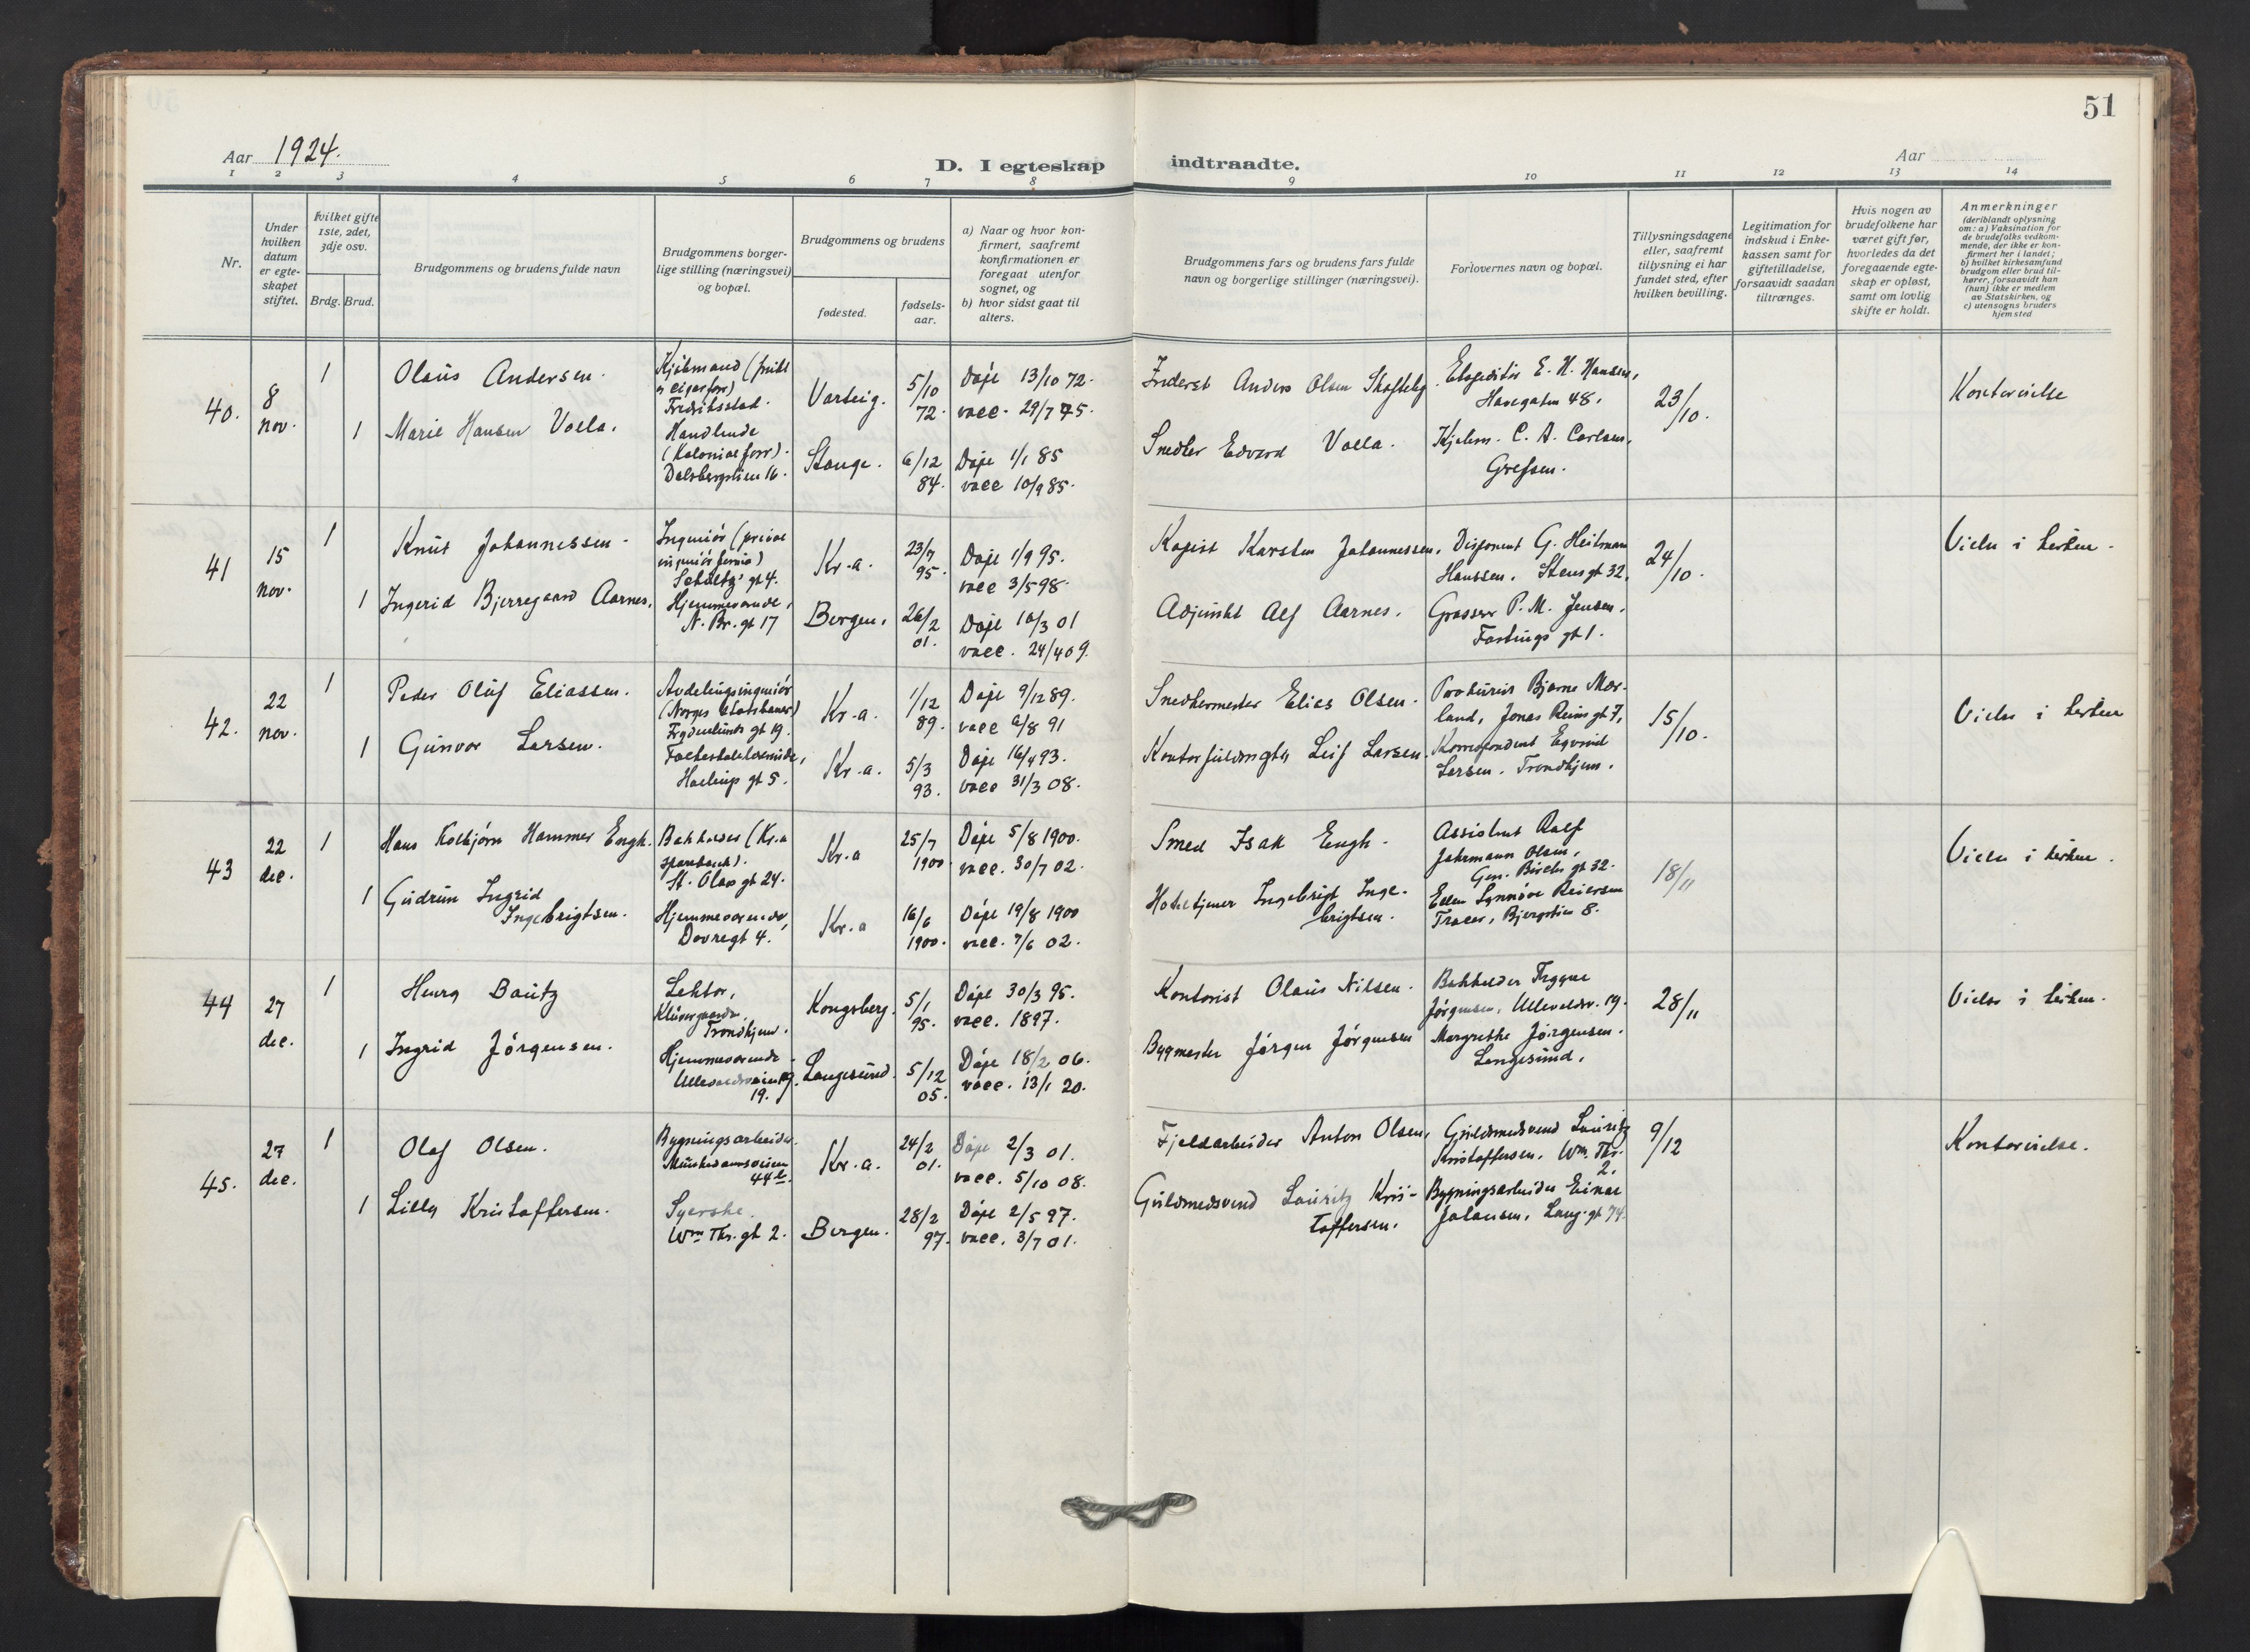 51
Aar 1924.
D. I egteskap indtraadte.
Aar
1 2 3 4 5 6 7 8 9 10 11 12 13 14
Nr.
Under hvilken datum er egteskapet stiftet.
hvilket gifte 1ste, 2det, 3dje osv.
Brdg. Brud.
Brudgommens og brudens fulde navn
Brudgommens borgerlige stilling (næringsvei) og bopæl.
Brudgommens og brudens
fødested.
fødselsaar.
a) Naar og hvor konfirmert, saafremt konfirmationen er foregaat utenfor sognet, og
b) hvor sidst gaat til alters.
Brudgommens fars og brudens fars fulde navn og borgerlige stillinger (næringsvei).
Forlovernes navn og bopæl.
Tillysningsdagene eller, saafremt tillysning ei har fundet sted, efter hvilken bevilling.
Legitimation for indskud i Enkekassen samt for giftetilladelse, forsaavidt saadan tiltrænges.
Hvis nogen av brudefolkene har været gift før, hvorledes da det foregaaende egteskap er opløst, samt om lovlig skifte er holdt.
Anmerkninger (deriblandt oplysning om: a) Vaksination for de brudefolks vedkommende, der ikke er konfirmert her i landet; b) hvilket kirkesamfund brudgom eller brud tilhører, forsaavidt han (hun) ikke er medlem av Statskirken, og c) utensogns bruders hjemsted
40. 8 nov.
1 Olaus Andersen.
Fredriksstad.
Varteig. 5/10 72.
Døpt 13/10 72.
vacc. 29/7 75.
Inderst Anders Olsen
E. H. Hansen,
Havegaten 48.
23/10.
Kontorvielse
1 Marie Hansen Valla.
Handlende
(Kolonialforr).
Dalsbergstien 16.
Stange. 6/12 84.
Døpt 1/1 85
vacc 10/9 85.
Snedker Edvard Valla.
Kjøbm. C. A. Carlsen,
Grefsen.
41 15 nov.
1 Knut Johannessen.
Ingeniør (privat
ingeniørfirma)
Schultz' gt 4.
Kr.a. 23/7 95.
Døpt 1/9 95.
vacc 3/5 98.
Karsten Johannessen.
Disponent G. Heitmann
Hanssen. Stensgt 32.
24/10.
Vielse i kirken.
1 Ingerid Bjerregaard Aarnes.
Hjemmeværende,
N. Br. gt 17
Bergen. 26/2 01.
Døpt 16/3 01
vacc. 24/4 09.
Adjunkt Alf Aarnes.
Grosser P. M. Jensen.
Fastings gt 1.
42. 22 nov.
1 Peder Oluf Eliassen.
Avdelingsingeniør
(Norges Statsbaner)
Frydenlunds gt 19.
Kr.a. 1/12 89.
Døpt 9/12 89.
vacc 6/8 91
Snedkermester Elias Olsen.
Prokurist Bjarne Mørland, Jonas Reins gt 7,
15/10.
Vielse i kirken
1 Gunvor Larsen.
Hallings gt 5.
Kr.a. 5/3 93.
Døpt 16/4 93.
vacc 31/3 08.
Kontorfuldmægtig Leif Larsen.
Korrespondent Eyvind
Larsen. Trondhjem.
43 22 dec.
1 Hans Kolbjørn Hammer Engh.
Bokholder (Kr.a
sparebank).
St. Olavs gt 24.
Kr.a 25/7 1900
Døpt 5/8 1900.
vacc. 30/7 02.
Smed Isak Engh.
Assistent Ralf
Jahrmann Olsen,
Gen. Birchs gt 32.
18/11
Vielse i kirken.
1 Gudrun Ingrid
Ingebrigtsen.
Hjemmeværende,
Dovregt 4.
Kr.a 16/6 1900.
Døpt 19/8 1900
vacc. 7/6 02.
Hoteltjener Ingebrigt Ingebrigtsen.
Ellen Synnøve Reiersen
Bjergstien 8.
44 27 dec.
1 Henry Bautz
Lektor,
Trondhjem.
Kongsberg. 5/1 95.
Døpt 30/3 95.
vacc. 1897.
Kontorist Olaus Nilsen.
Bokholder Trygve
Jørgensen, Ullevaldsv. 19.
28/11
Vielse i kirken.
1 Ingrid Jørgensen.
Hjemmeværende
Ullevaldsveien
19.
Langesund. 5/12 05.
Døpt 18/2 06.
vacc. 13/1 20.
Bygmester Jørgen Jørgensen
Margrethe Jørgensen.
Langesund.
45. 27 dec.
1 Olaf Olsen.
Bygningsarbeider.
Munkedamsveien
44
Kr.a. 24/2 01.
Døpt 2/3 01.
vacc. 5/10 08.
Fjeldarbeider Anton Olsen,
Guldsmedsvend Lauritz
Kristoffersen. Wm. Thr.
2.
9/12
Kontorvielse.
1 Lilly Kristoffersen.
Syerske.
Wm Thr. gt 2.
Bergen. 28/2 97.
Døpt 2/5 97.
vacc. 3/7 01.
Guldsmedsvend Lauritz Kristoffersen.
Bygningsarbeider Einar
Johansen, Lang. gt 74.